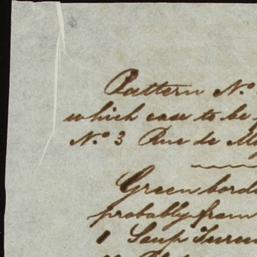 Pattern No.
which case to be
No. 3 Rue de
Green bord
probably from
1 Soup Turee